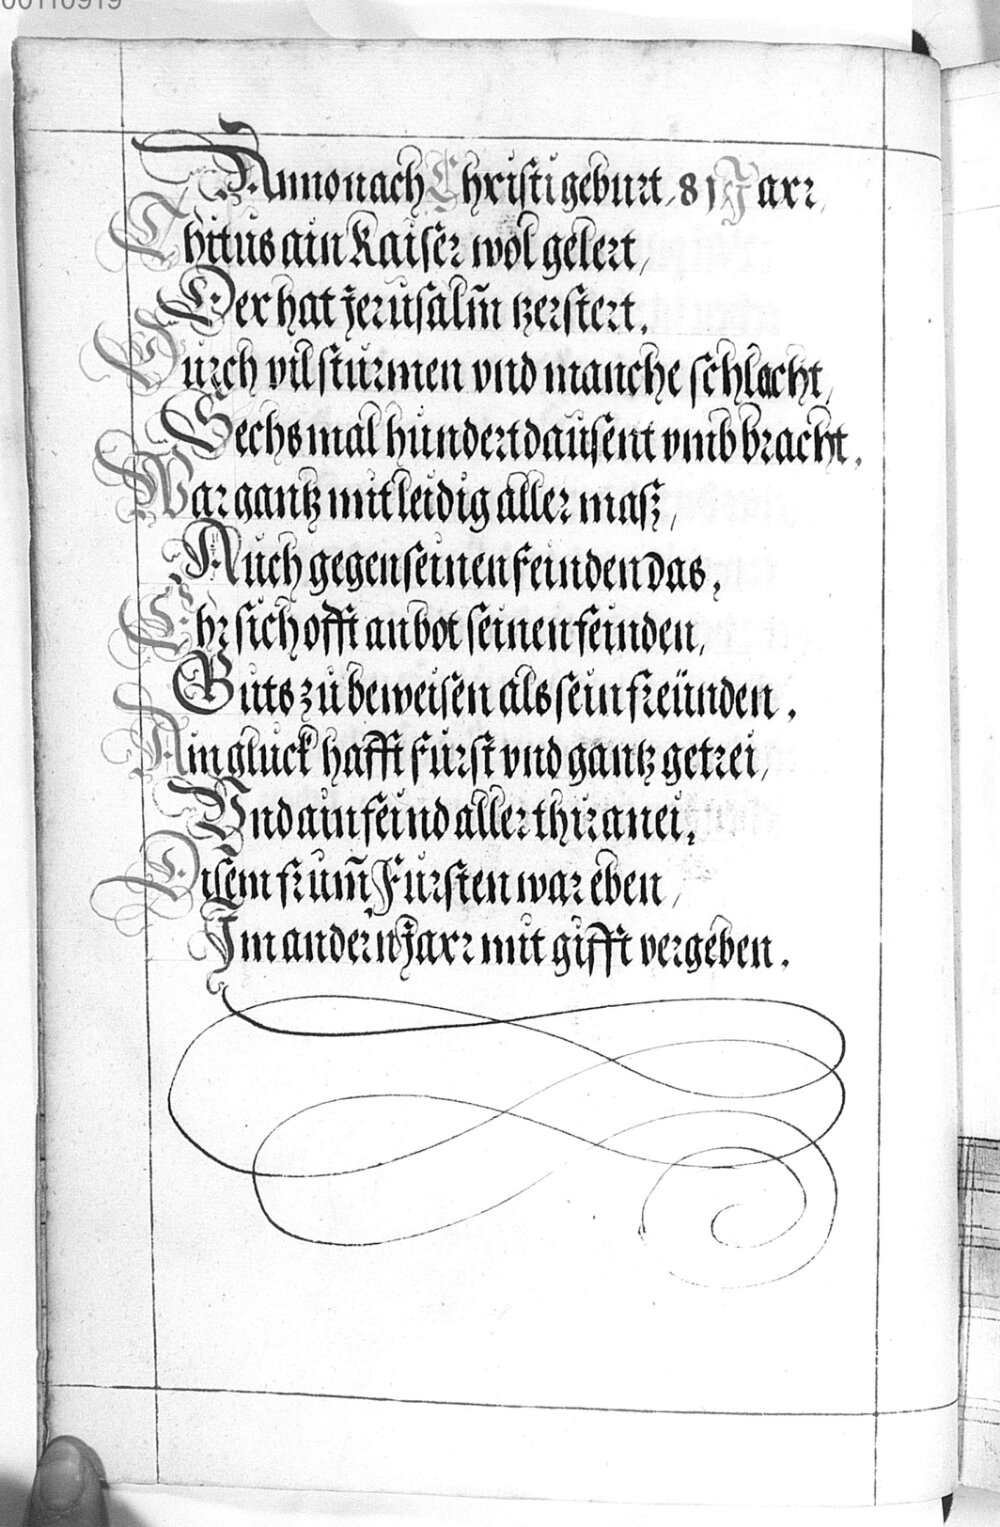 00110919
Anno nach Christi geburt, 81 Jarr,
Thitus ain Kaiser wol gelert,
Der hat Jerusalm̄ tzerstert.
Durch vil sturmen vnd manche schlacht,
Sechs mal hundert dausent vmb bracht.
War gantz mitleidig aller masz,
Auch gegen seinen feinden das,
Ehr sich offt anbot seinen feinden,
Guts zu beweisen als sein freünden.
Ain gluck hafft furst vnd gantz getrei,
Vnd ain feind aller thiranei,
Disem frum̄ Fursten war eben,
Im andern Jarr mit gifft vergeben.